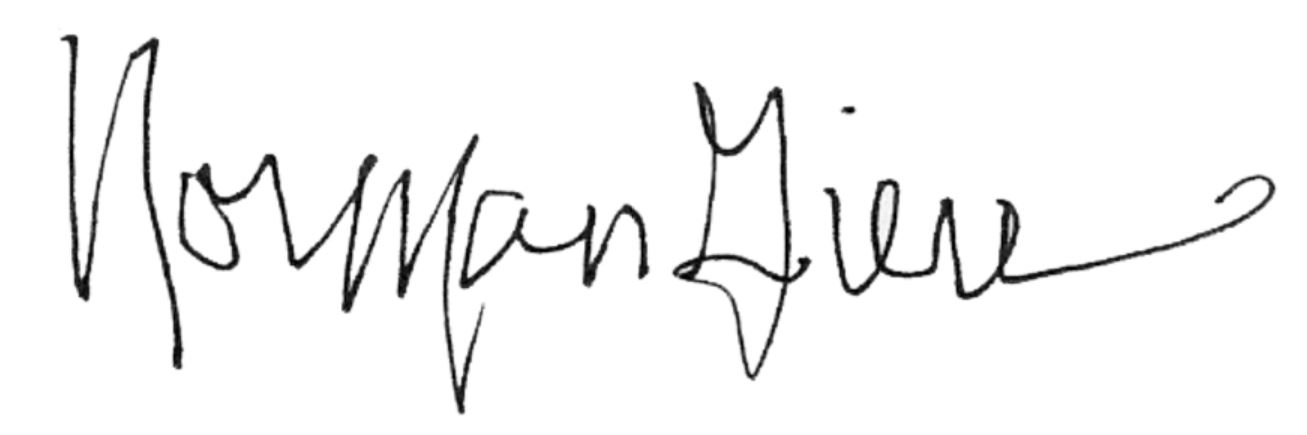 Norman Giere